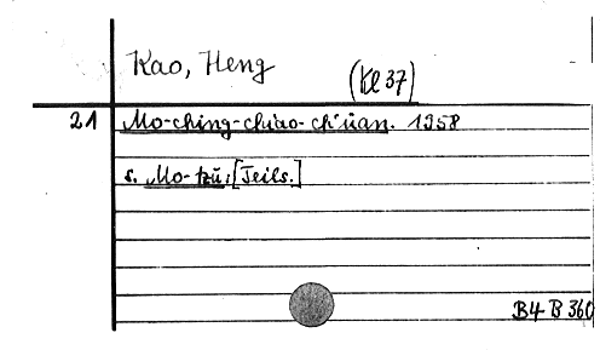 Kao, Heng
(Kl 37)
21 Mo-ching-chiao-ch'üan. 1958
s. Mo-tzŭ, [Teils.]
B4 B 360